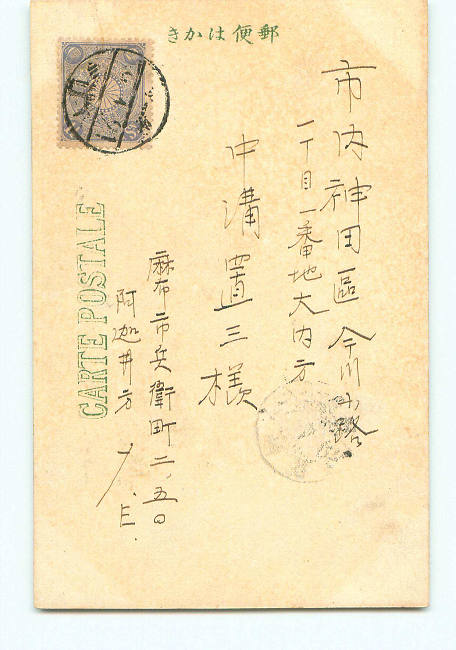 郵便はかき
市内神田區今川小路
一丁目一番地大内方
中溝置三様
麻布市兵衛町二ノ五〇
阿迦井方
CARTE POSTALE